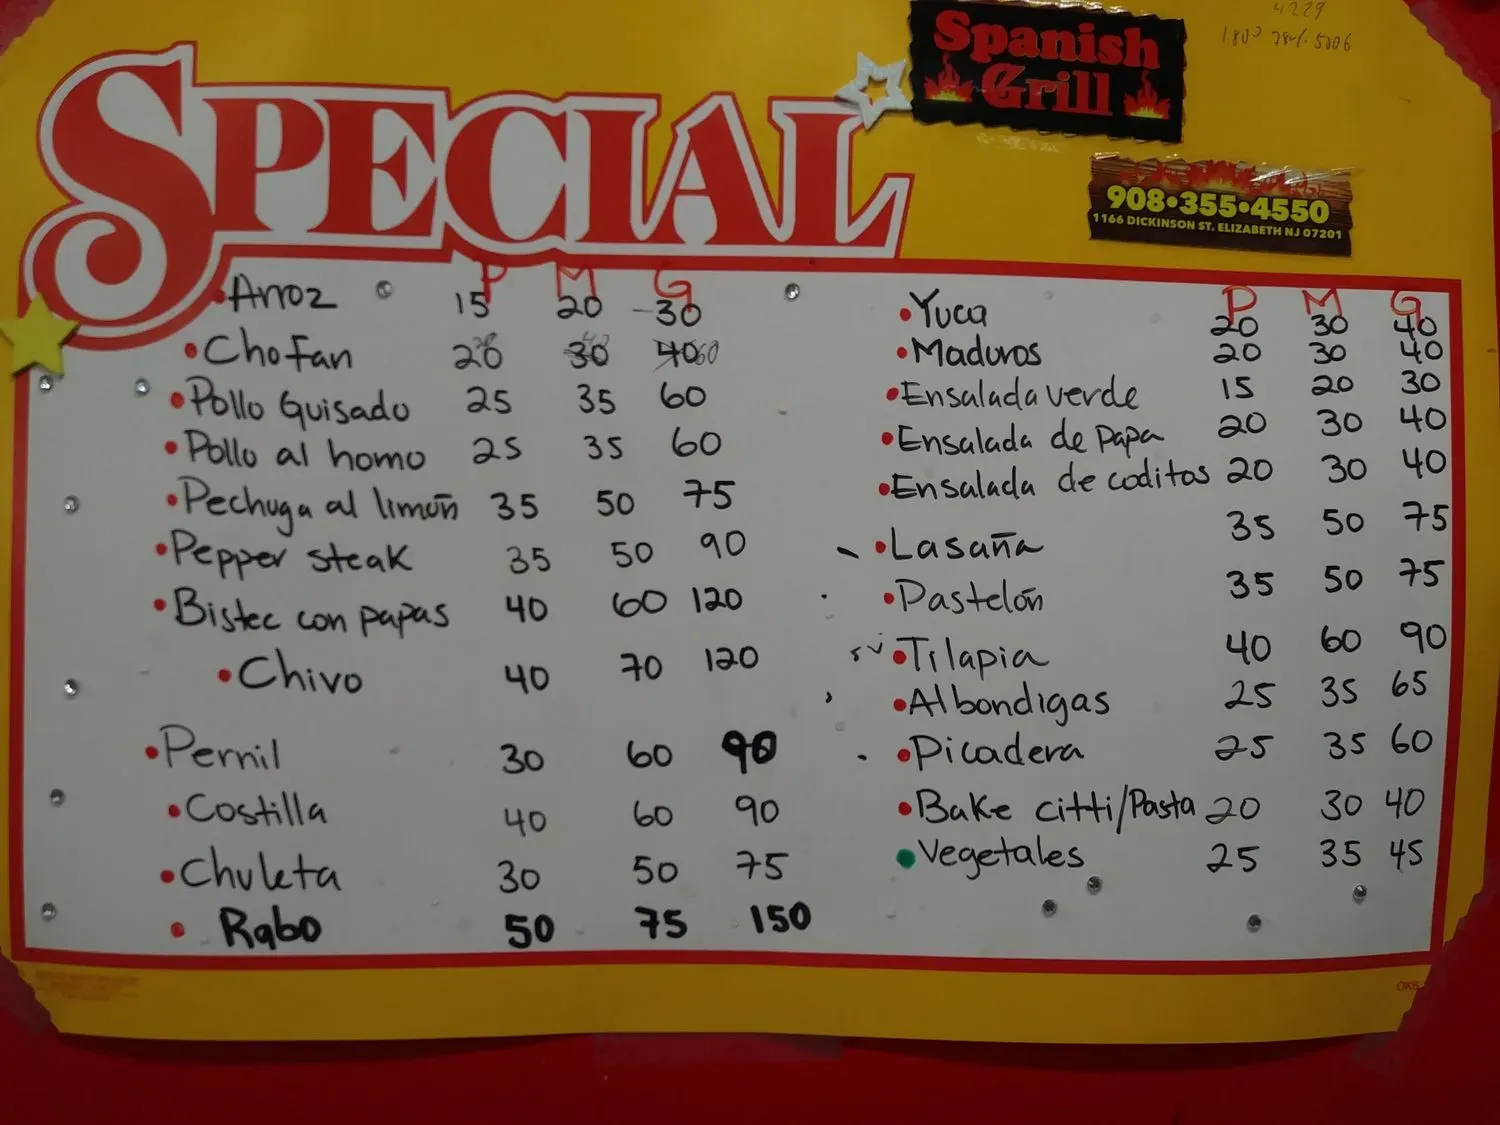 4229
Spanish
Grill
908•355•4550
1166 DICKINSON ST. ELIZABETH NJ 07201
SPECIAL
P M G
•Arroz 15 20 30
•Chofan 20 30 40 60
•Pollo Guisado 25 35 60
•Pollo al horno 25 35 60
•Pechuga al limón 35 50 75
•Pepper steak 35 50 90
•Bistec con papas 40 60 120
•Chivo 40 70 120
•Pernil 30 60 90
•Costilla 40 60 90
•Chuleta 30 50 75
•Rabo 50 75 150
P M G
•Yuca 20 30 40
•Maduros 20 30 40
•Ensalada verde 15 20 30
•Ensalada de papa 20 30 40
•Ensalada de coditos 20 30 40
•Lasaña 35 50 75
•Pastelón 35 50 75
•Tilapia 40 60 90
•Albondigas 25 35 65
•Picadera 25 35 60
•Bake citti/Pasta 20 30 40
•Vegetales 25 35 45